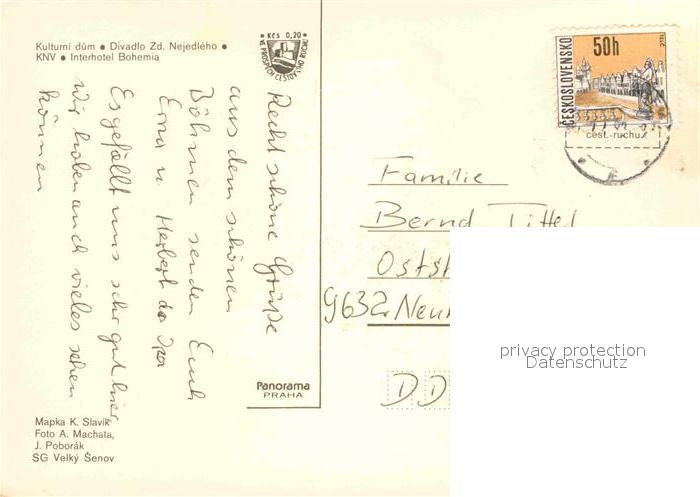 Kulturní dům • Divadlo Zd. Nejedlého •
KNV • Interhotel Bohemia
• Kčs 0,20 •
VE PROSPĚCH CESTOVNÍHO RUCHU
ČESKOSLOVENSKO
50h
cest. ruchu
Recht schöne Grüße
aus dem schönen
Böhmen senden Euch
Erna u Herbert
Es gefällt uns sehr gut hier
wir haben auch vieles sehen
können
Familie
Bernd Tittel
Ostst
9632 Neu
DD
privacy protection
Datenschutz
Panorama
PRAHA
Mapka K. Slavík
Foto A. Machata,
J. Poborák
SG Velký Šenov